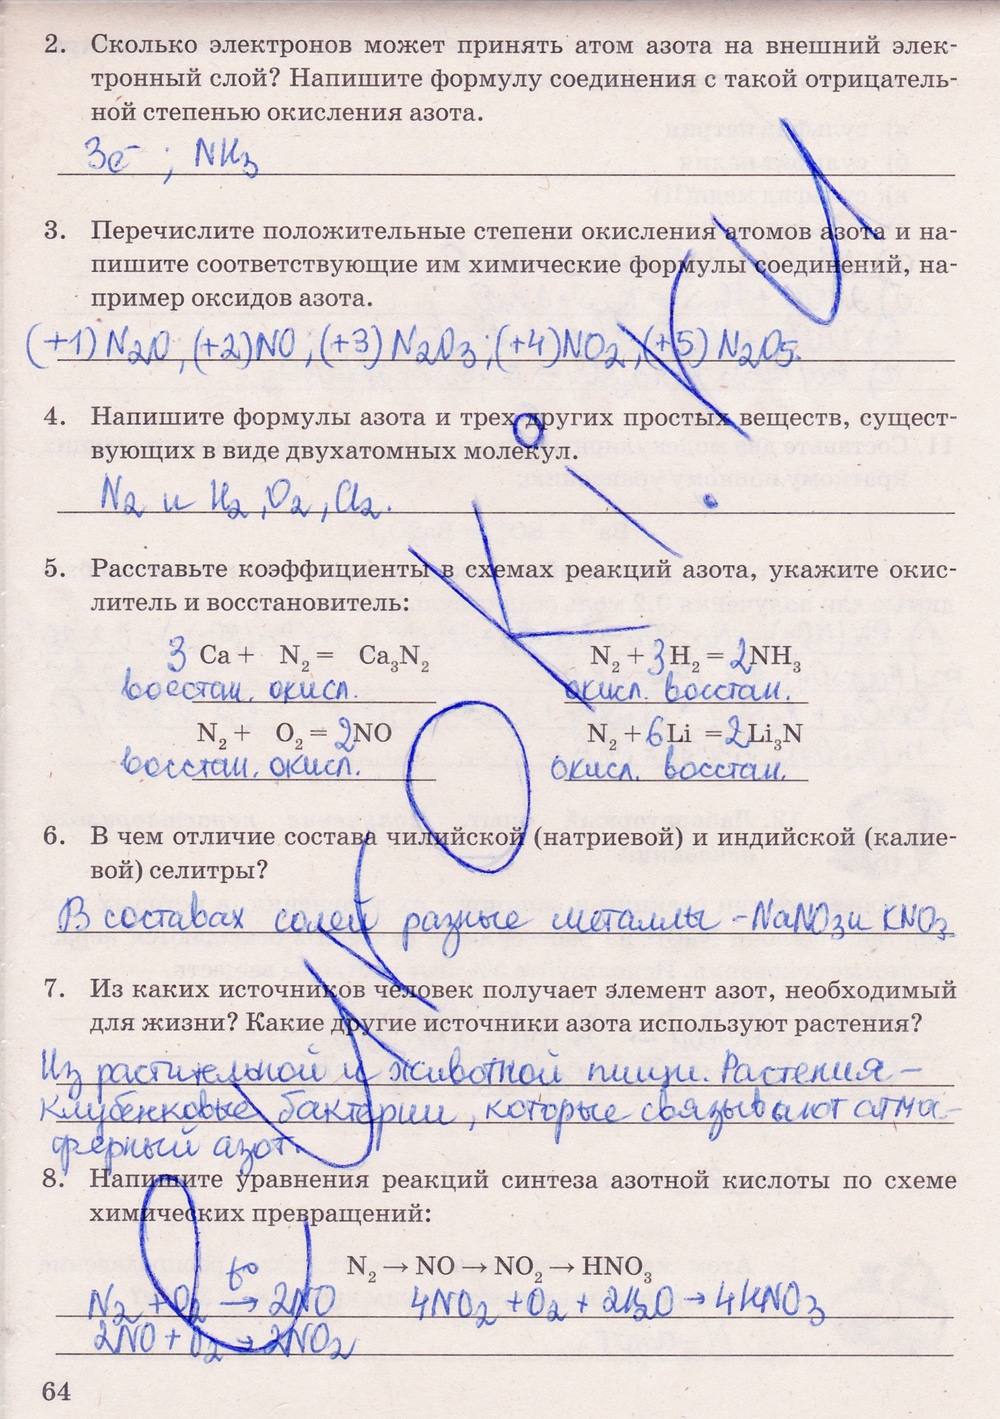 2. Сколько электронов может принять атом азота на внешний элек-
тронный слой? Напишите формулу соединения с такой отрицатель-
ной степенью окисления азота.
3e⁻ ; NH₃
3. Перечислите положительные степени окисления атомов азота и на-
пишите соответствующие им химические формулы соединений, на-
пример оксидов азота.
(+1) N₂O, (+2)NO; (+3) N₂O₃; (+4)NO₂; (+5) N₂O₅.
4. Напишите формулы азота и трех других простых веществ, сущест-
вующих в виде двухатомных молекул.
N₂ и H₂, O₂, Cl₂.
5. Расставьте коэффициенты в схемах реакций азота, укажите окис-
литель и восстановитель:
3 Ca + N₂ = Ca₃N₂ N₂ + 3H₂ = 2NH₃
восстан. окисл. окисл. восстан.
N₂ + O₂ = 2NO N₂ + 6Li = 2Li₃N
восстан. окисл. окисл. восстан.
6. В чем отличие состава чилийской (натриевой) и индийской (калие-
вой) селитры?
В составах солей разные металлы - NaNO₃ и KNO₃.
7. Из каких источников человек получает элемент азот, необходимый
для жизни? Какие другие источники азота используют растения?
Из растительной и животной пищи. Растения –
клубеньковые бактерии, которые связывают атмо-
ферный азот.
8. Напишите уравнения реакций синтеза азотной кислоты по схеме
химических превращений:
N₂ → NO → NO₂ → HNO₃
N₂ + O₂ t° → 2NO 4NO₂ + O₂ + 2H₂O → 4HNO₃
2NO + O₂ → 2NO₂
64
GUNOKI.RU